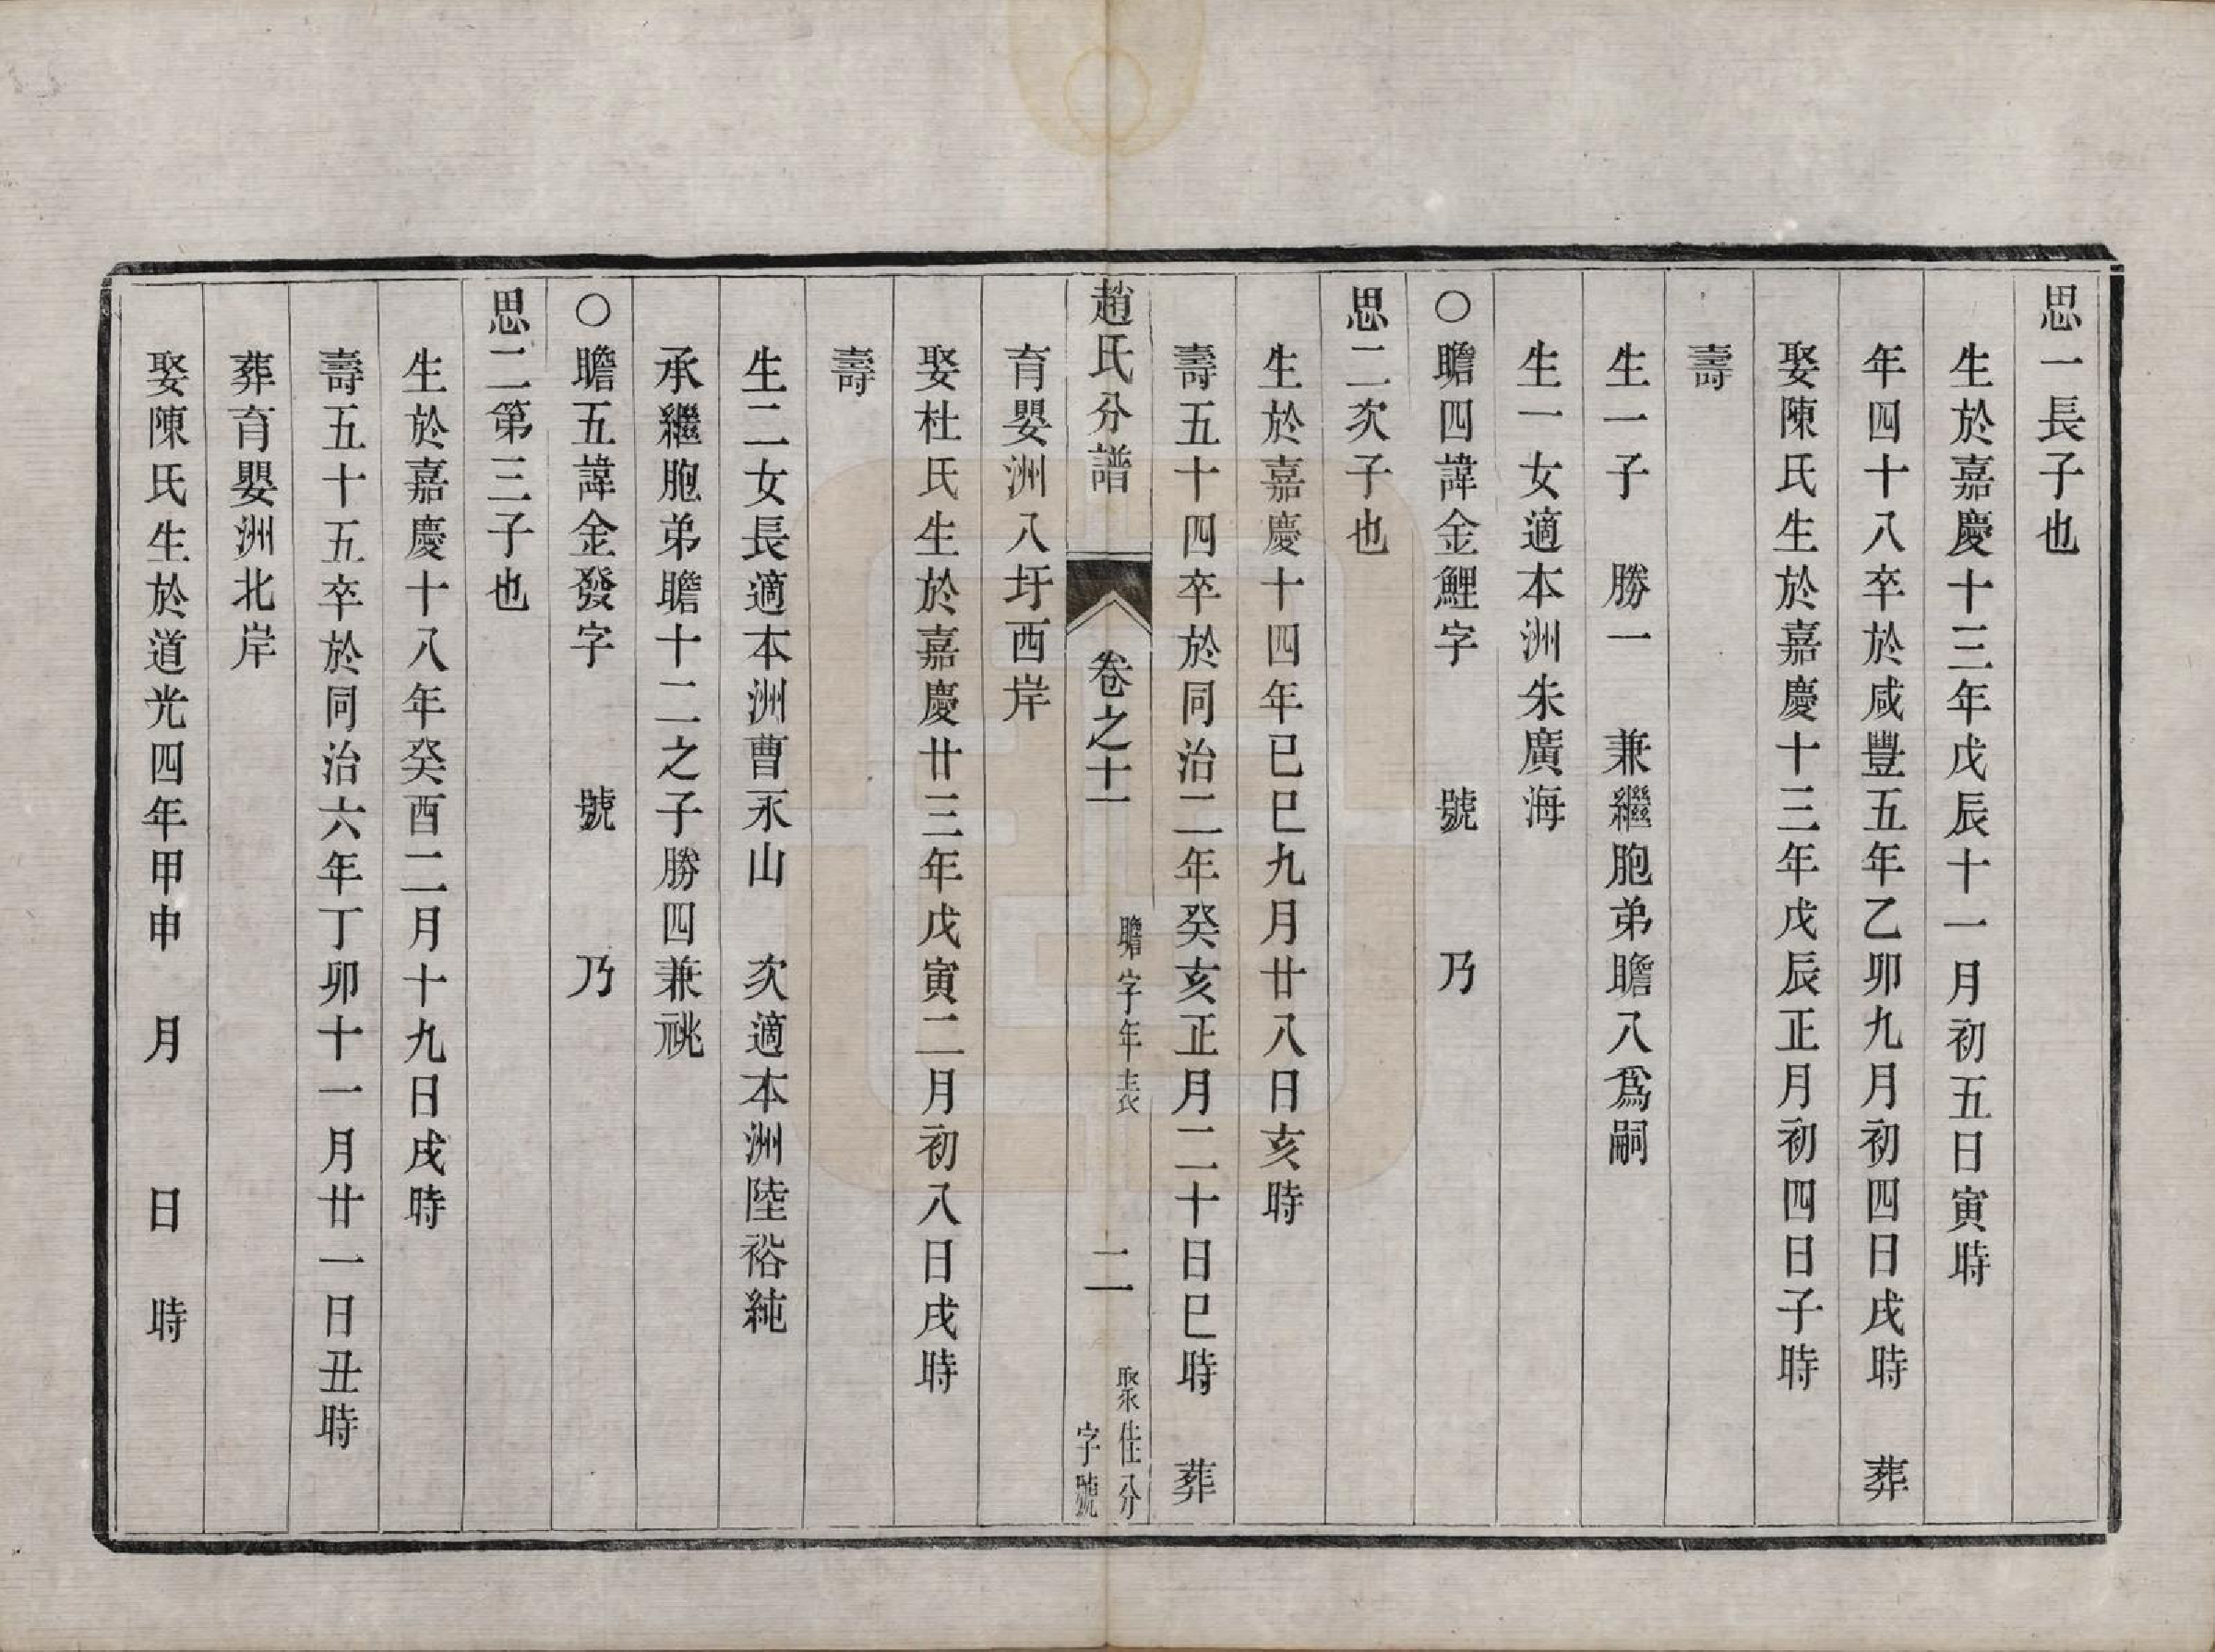 思一長子也
生於嘉慶十三年戊辰十一月初五日寅時
年四十八卒於咸豐五年乙卯九月初四日戌時　葬
娶陳氏生於嘉慶十三年戊辰正月初四日子時
壽
生一子　勝一　兼繼胞弟瞻八爲嗣
生一女適本洲朱廣海
○瞻四諱金鯉字　　號　　乃
思二次子也
生於嘉慶十四年己巳九月廿八日亥時
壽五十四卒於同治二年癸亥正月二十日巳時　葬
趙氏分譜　卷之十一　瞻字年表　二　聚佳分字號
育嬰洲八圩西岸
娶杜氏生於嘉慶廿三年戊寅二月初八日戌時
壽
生二女長適本洲曹永山　次適本洲陸裕純
承繼胞弟瞻十二之子勝四兼祧
○瞻五諱金發字　　號　　乃
思二第三子也
生於嘉慶十八年癸酉二月十九日戌時
壽五十五卒於同治六年丁卯十一月廿一日丑時
葬育嬰洲北岸
娶陳氏生於道光四年甲申　月　　日　時